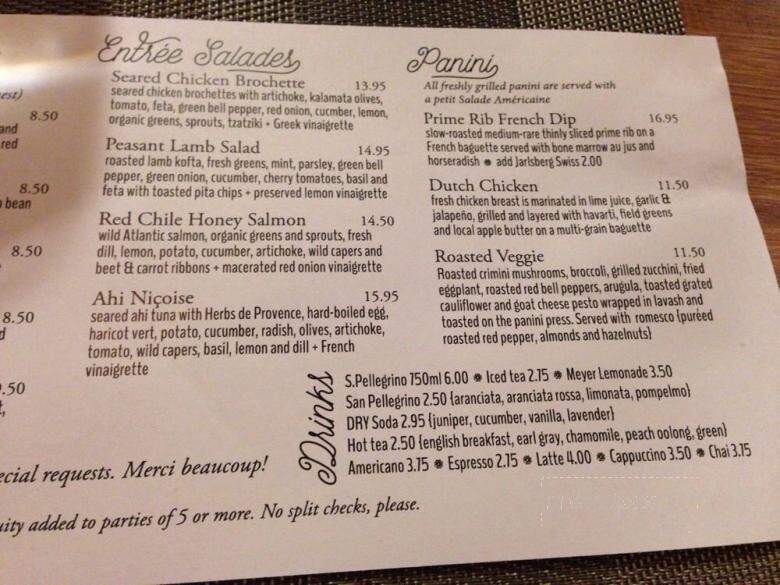 est)
8.50
and
red
8.50
o bean
8.50
8.50
d
.50
t,
Entrée Salades
Seared Chicken Brochette 13.95
seared chicken brochettes with artichoke, kalamata olives,
tomato, feta, green bell pepper, red onion, cucumber, lemon,
organic greens, sprouts, tzatziki + Greek vinaigrette
Peasant Lamb Salad 14.95
roasted lamb kofta, fresh greens, mint, parsley, green bell
pepper, green onion, cucumber, cherry tomatoes, basil and
feta with toasted pita chips + preserved lemon vinaigrette
Red Chile Honey Salmon 14.50
wild Atlantic salmon, organic greens and sprouts, fresh
dill, lemon, potato, cucumber, artichoke, wild capers and
beet & carrot ribbons + macerated red onion vinaigrette
Ahi Niçoise 15.95
seared ahi tuna with Herbs de Provence, hard-boiled egg,
haricot vert, potato, cucumber, radish, olives, artichoke,
tomato, wild capers, basil, lemon and dill + French
vinaigrette
Panini
All freshly grilled panini are served with
a petit Salade Américaine
Prime Rib French Dip 16.95
slow-roasted medium-rare thinly sliced prime rib on a
French baguette served with bone marrow au jus and
horseradish ● add Jarlsberg Swiss 2.00
Dutch Chicken 11.50
fresh chicken breast is marinated in lime juice, garlic &
jalapeño, grilled and layered with havarti, field greens
and local apple butter on a multi-grain baguette
Roasted Veggie 11.50
Roasted crimini mushrooms, broccoli, grilled zucchini, fried
eggplant, roasted red bell peppers, arugula, toasted grated
cauliflower and goat cheese pesto wrapped in lavash and
toasted on the panini press. Served with romesco {puréed
roasted red pepper, almonds and hazelnuts}
Drinks
S.Pellegrino 750ml 6.00 ● Iced tea 2.75 ● Meyer Lemonade 3.50
San Pellegrino 2.50 {aranciata, aranciata rossa, limonata, pompelmo}
DRY Soda 2.95 {juniper, cucumber, vanilla, lavender}
Hot tea 2.50 {english breakfast, earl gray, chamomile, peach oolong, green}
Americano 3.75 ● Espresso 2.75 ● Latte 4.00 ● Cappuccino 3.50 ● Chai 3.75
ecial requests. Merci beaucoup!
uity added to parties of 5 or more. No split checks, please.